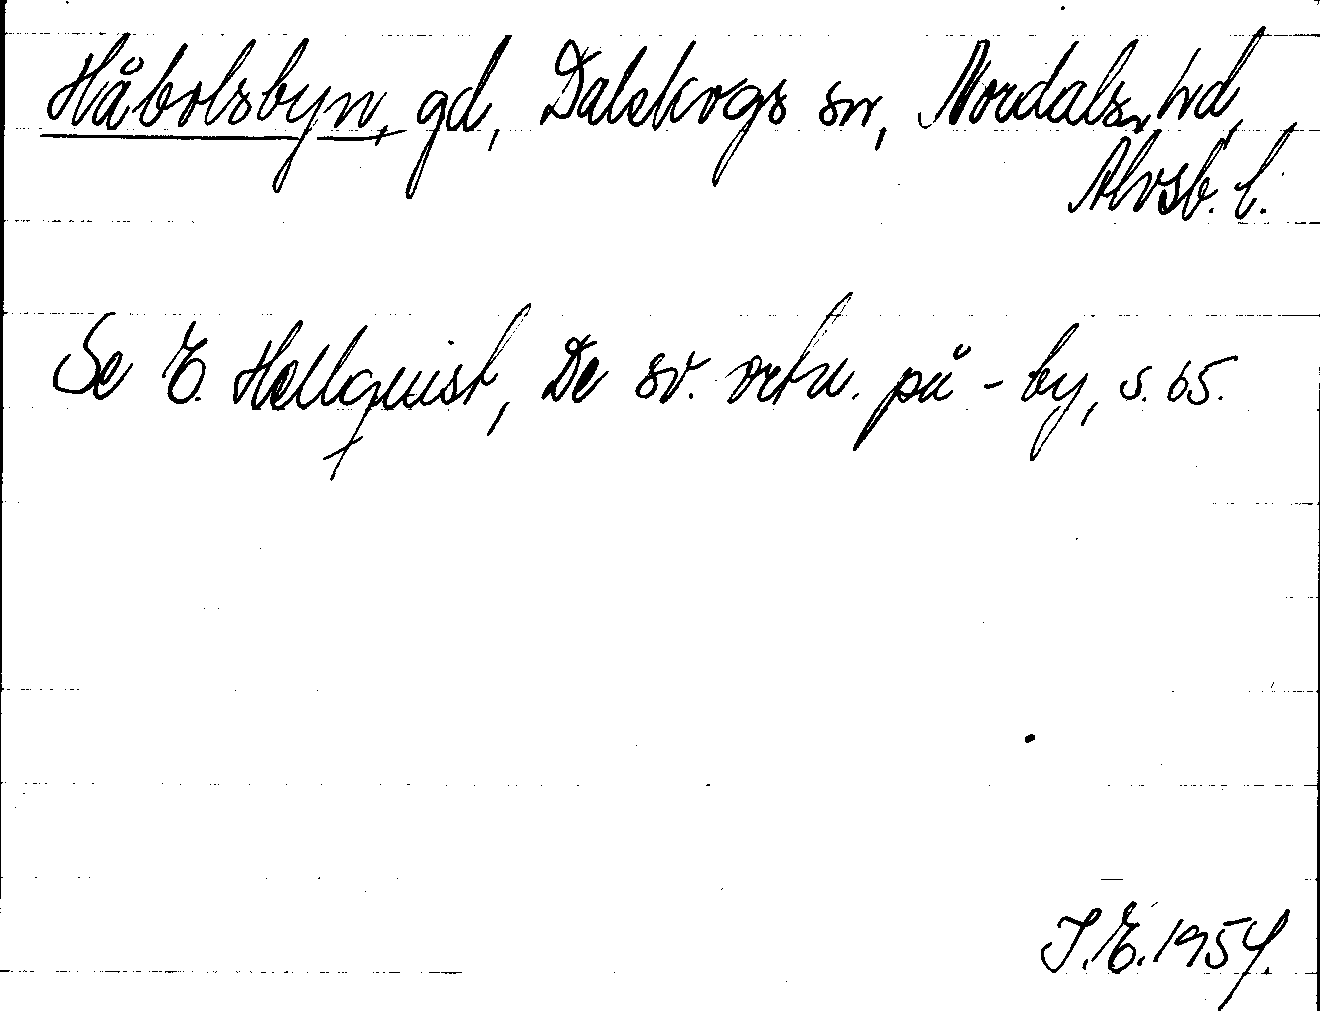 Håbolsbyn, gd, Dalskogs sn, Nordals hd,
Älvsb. l.
Se E. Hellquist, De sv. ortn. på -by, s. 65.
I.E. 1954.